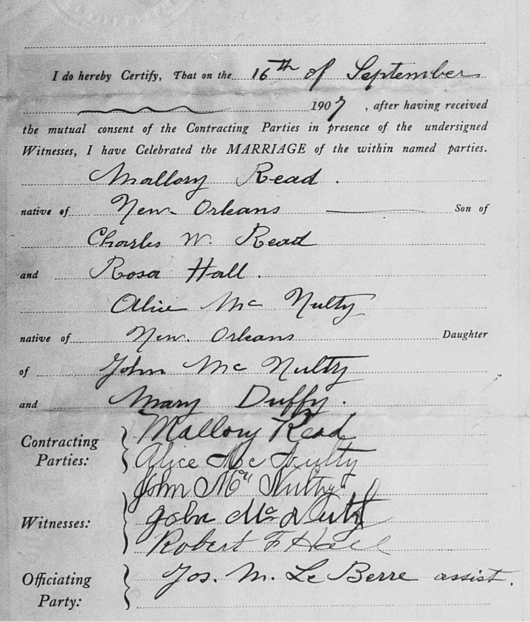 I do hereby Certify, That on the 16th of September
1907, after having received
the mutual consent of the Contracting Parties in presence of the undersigned
Witnesses, I have Celebrated the MARRIAGE of the within named parties.
Mallory Read.
native of New Orleans Son of
Charles W. Read
and Rosa Hall.
Alice Mc Nulty
native of New Orleans Daughter
of John Mc Nulty
and Mary Duffy.
Contracting Parties: Mallory Read
Alice Mc Nulty
John Mc Nulty
Witnesses: John Mc Nulty
Robert F Hall
Officiating Party: Jos. M. Le Berre assist.